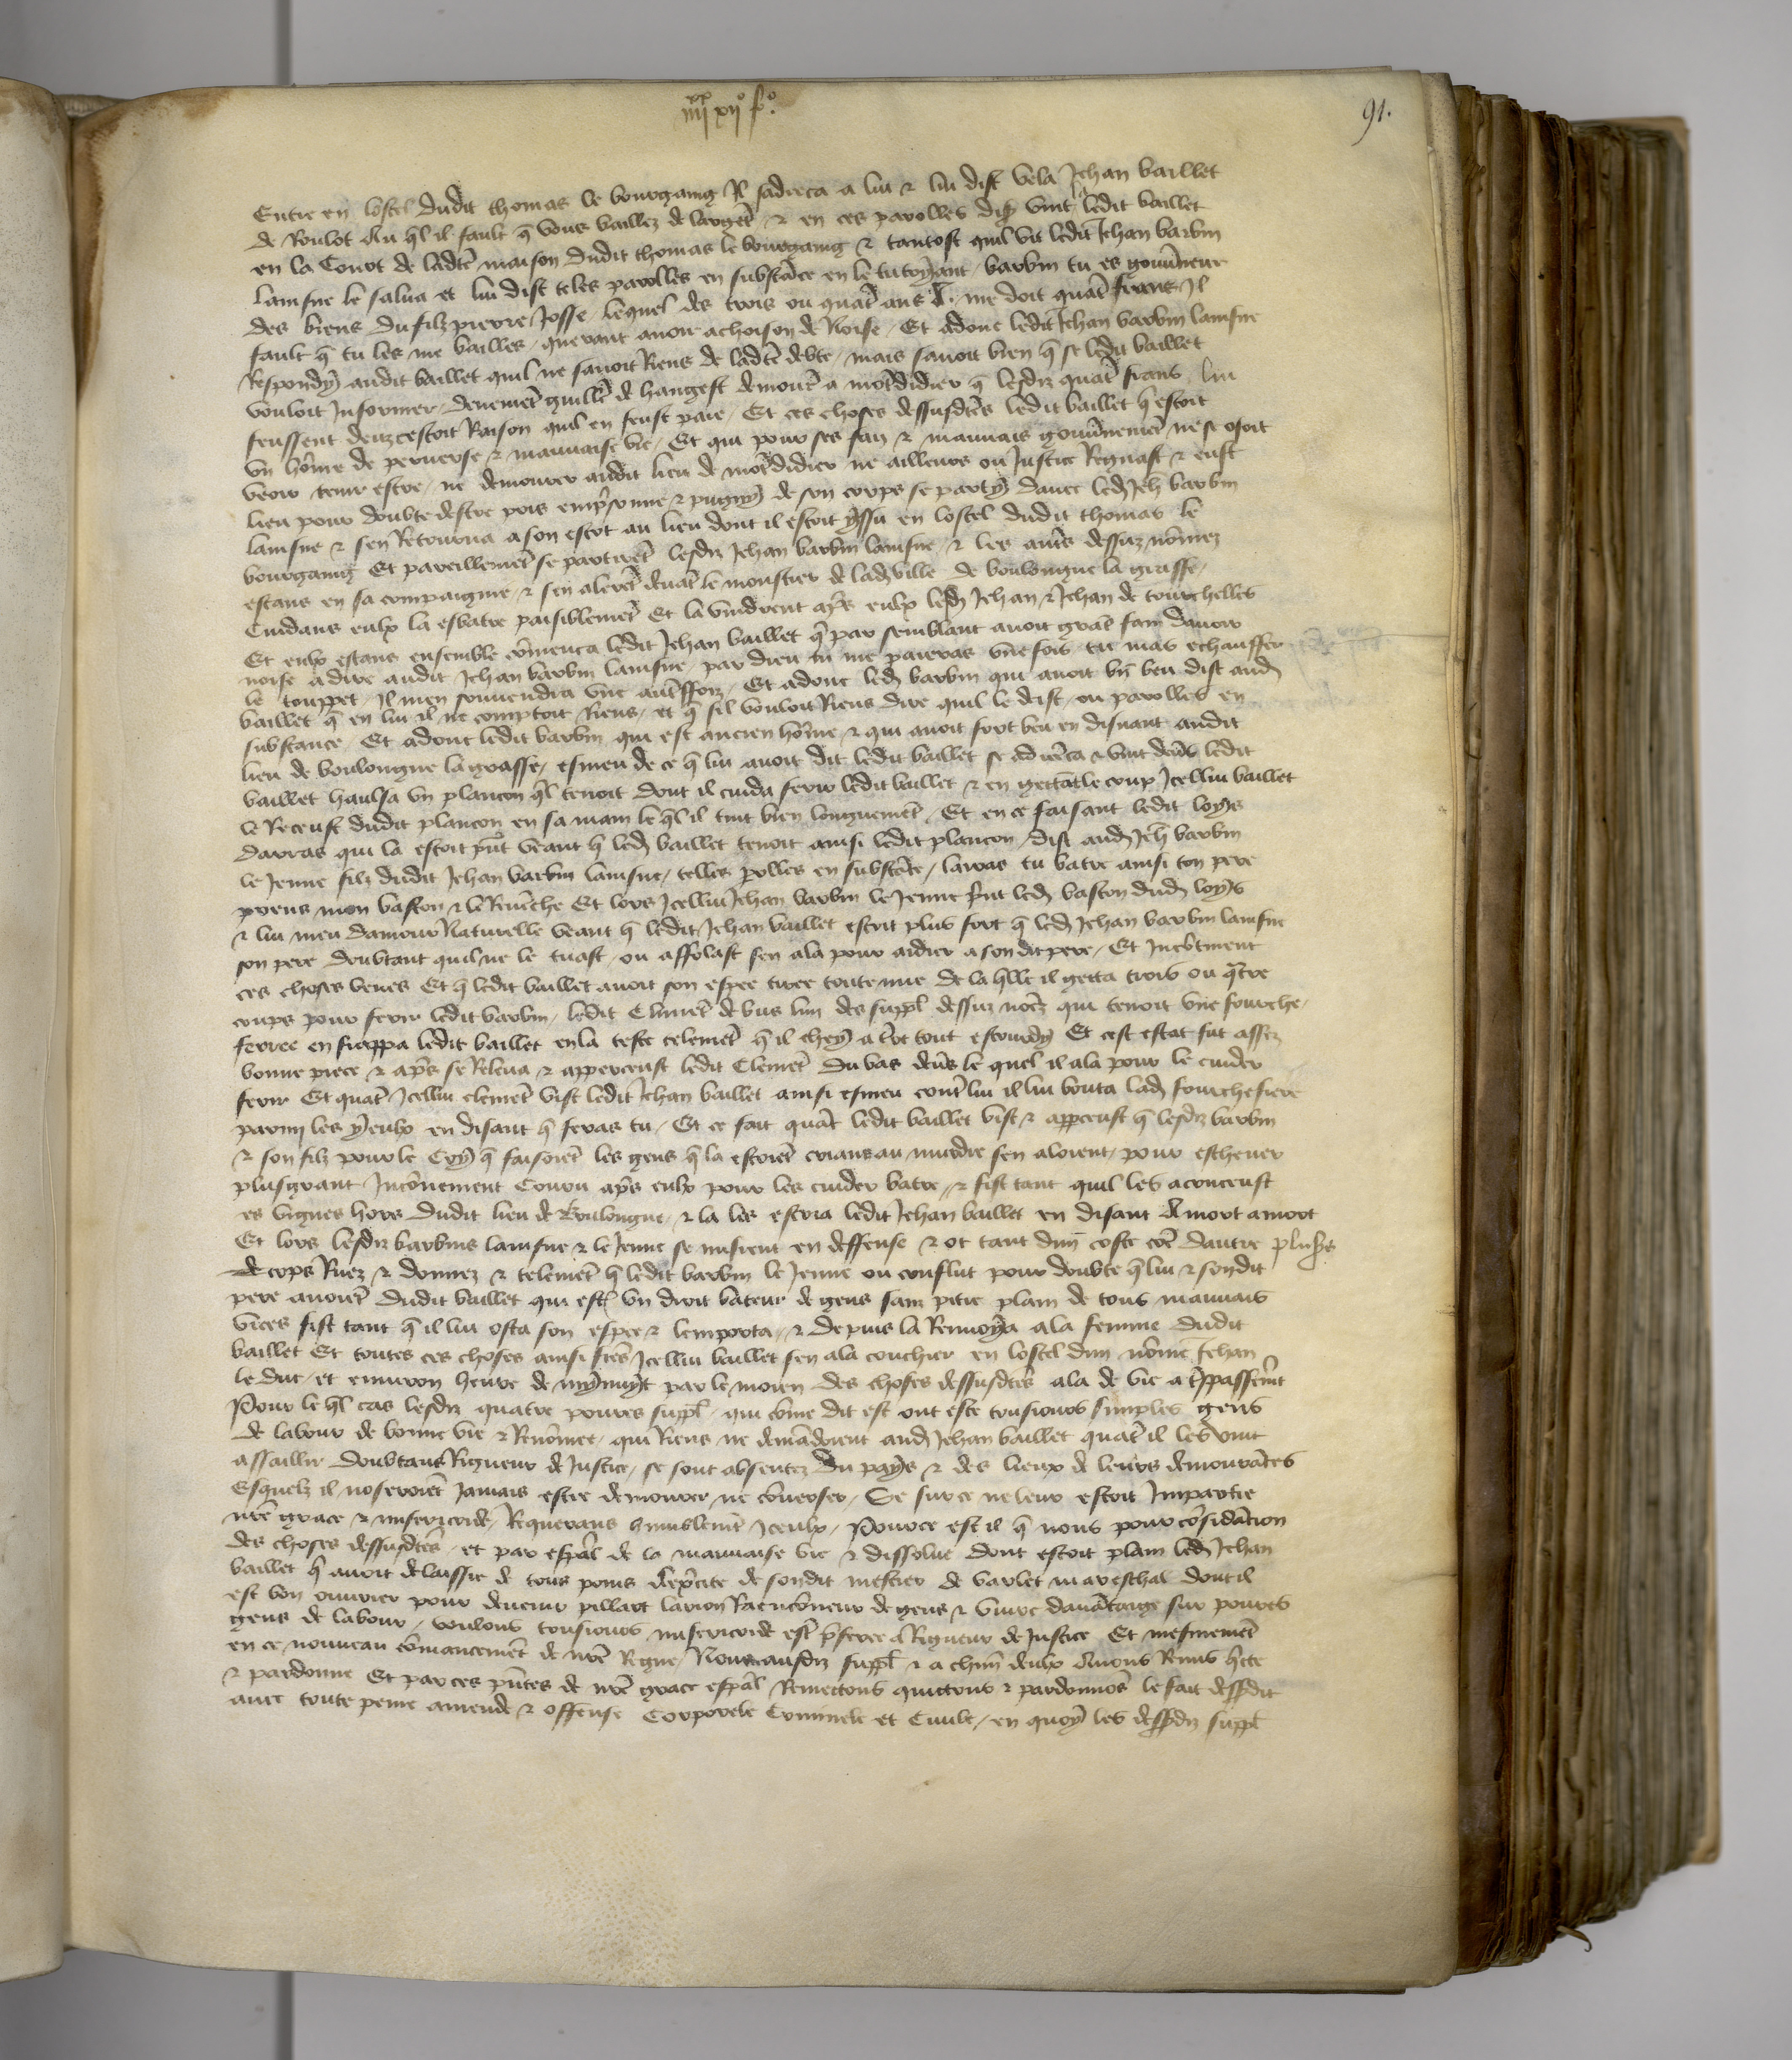 iiii xx xii o f o.
91.
Entre en lostel dudit thomas le bourgaing Il sadreca a lui & lui dist vela Jehan baillet
de Roulot au ql il fault q̄ vous baillez de largēt / & en ces parolles dis̄ vint ledit baillet
en la Court de ladc̄e maison dudit thomas le bourgaing & tantost quil vit ledit Jehan barbin
lainsne le salua et lui dist teles parolles en substāce en le tutoyant / barbin tu es gouūneur
des biens du filz pierre Josse / lequel des trois ou quatr̄ ans a. me doit quatr̄ frans Il
fault q̄ tu les me bailles / querant auoir achoison de Noise / Et adonc ledit Jehan barbin lainsne
Respondy audit baillet quil ne sauoit Riens de ladc̄e debte / mais sauoit bien q̄ se ledit baillet
vouloit Informer / deuemēt guillē de hangest demourā a mōtdidier q̄ lesdiz quatr̄ frans lui
feussent deuz cestoit Raison quil en feust paie / Et ces choses dessusdc̄es ledit baillet q̄ estoit
vn hōme de peruerse & mauuaise vie / Et qui pour ses faiz & mauuais gouūnemēt ne se osoit
veoir tenir estre / ne demourer audit lieu de mōtdidier ne ailleurs ou Justice Regnast & eust
lieu pour doubte destre pris emprisonne & pugny de son corps se party dauec led Jeh barbin
lainsne & sen Retourna a son escot au lieu dont il estoit yssu en lostel dudit thomas le
bourgaing Et pareillemēt se partirēt lesdiz Jehan barbin lainsne / & les autr̄s dessuz nōmez
estans en sa compaignie / & sen alerēt deuāt le monstier de lad ville de boulongne la grasse /
Cuidans eulx la esbatre paisiblemēt Et la vindrent apr̄s eulx lesd Jehan & Jehan de tourchelles
Et eulx estans ensemble cōmenca ledit Jehan baillet q̄ par semblant auoit grāt fain dauoir
noise a dire audit Jehan barbin lainsne / par dieu tu me paieras vne fois tu mas echauffer
le touppet / Il men souuendra vne autr̄ffoiz / Et adonc led barbin qui auoit bn̄ beu dist aud
baillet q̄ en lui il ne comptoit Riens / et q̄ sil vouloit Riens dire quil le dist / ou parolles en
substance / Et adonc ledit barbin qui est ancien hōme & qui auoit fort beu en disnant audit
lieu de boulongne la grasse / esmeu de ce q̄ lui auoit dit ledit baillet se adreca & vint deūs ledit
baillet haulsa vn plancon ql tenoit dont il cuida ferir ledit baillet & en gettāt le coup Icellui baillet
le Receust dudit plancon en sa main leql il tint bien longuemēt / Et en ce faisant ledit loys
darras qui la estoit pn̄t veant q̄ led baillet tenoit ainsi ledit plancon / dist aud Jeh barbin
le Jenne filz dudit Jehan barbin lainsne / telles polles en substāce / lairas tu batre ainsi ton pere
prens mon baston & le Reuēche Et lors Icellui Jehan barbin le Jenne pr̄nt led baston dud loys
& lui meu damour Naturelle veant q̄ ledit Jehan baillet estoit plus fort q̄ led Jehan barbin lainsne
son pere doubtant quil ne le tuast / ou affolast sen ala pour aidier a son dit pere / Et Incōtinent
ces choses veues Et q̄ ledit baillet auoit son espee tiree toute nue de laqlle il getta trois ou qtre
coups pour ferir ledit barbin / ledit Clemēt de bus lun des suppl dessuz nōēz qui tenoit vne fourche /
ferree en frappa ledit baillet en la teste telemēt q̄ il chey a tr̄e tout estourdy Et cest estat fut assez
bonne piece & apr̄s se Releua & apperceust ledit Clemēt du bas deūs le quel il ala pour le cuider
ferir Et quāt Icellui clemēt vist ledit Jehan baillet ainsi esmeu contr̄ lui il lui bouta lad fourchefiere
parmi les yeulx en disant q̄ feras tu / Et ce fait quāt ledit baillet vist & apperceust q̄ lesdiz barbin
& son filz pour le Cry q̄ faisoiēt les gens q̄ la estoiēt crians au murdre sen aloient / pour escheuer
plus grant Incōuenient Couru apr̄s eulx pour les cuider batre / & fist tant quil les aconceust
es vignes hors dudit lieu de Boulongne / & la les escria ledit Jehan baillet en disant A mort a mort
Et lors lesdiz barbins lainsne & le Jenne se misrent en deffense & ot tant dun coste cōe dautre plus̄s
de cops Ruez & donnez & telemēt q̄ ledit barbin le Jenne ou conflit pour doubte q̄ lui & sondit
pere auoiēt dudit baillet qui estoit vn droit bateur de gens sanz pitie plain de tous mauuais
vices fist tant q̄ il lui osta son espee & lemporta / & depuis la Renuoya a la femme dudit
baillet Et toutes ces choses ainsi fc̄es Icellui baillet sen ala couchier en lostel dun nōme Jehan
le duc / et enuiron heure de mynuyt par le moien des choses dessusdc̄es ala de vie a trespassemēt
Pour leql cas lesdiz quatre poures suppl / qui cōme dit est ont este tousiours simples gens
de labour de bonne vie & Renōmee / qui Riens ne demādoient aud Jehan baillet quāt il les vint
assaillir doubtans Rigueur de Justice / se sont absentez du pays & des lieux de leurs demourāces
Esquelz il / noseroiēt Jamais estre demourer ne cōuerser / Se sur ce ne leur estoit Impartie
nr̄e grace & misericorde / Requerans humblemēt Iceulx / Pource est il q̄ nous pour cōsidācion
des choses dessusdc̄es / et par espāl de la mauuaise vie & dissolue dont estoit plain led Jehan
baillet q̄ auoit delaissie de tous poins lexcite de sondit mestier de varlet mareschal dont il
est bon ouurier pour deuenir pillart larron Raenconneur de gens & viure dauātaige sur poures
gens de labour / voulons tousiours misericorde estr̄ pr̄feree a Rigueur de Justice Et mesmemēt
en ce nouueau cōmancemēt de nr̄e Regne / Nous ausdiz suppl & a chūn deulx Auons Remis qtte
& pardonne Et par ces pn̄tes de nr̄e grace espāl Remectons quictons & pardonnōs le fait dessusdit
auec toute peine amende & offense Corporele Criminele et Ciuile / en quoy les dessusdiz suppl